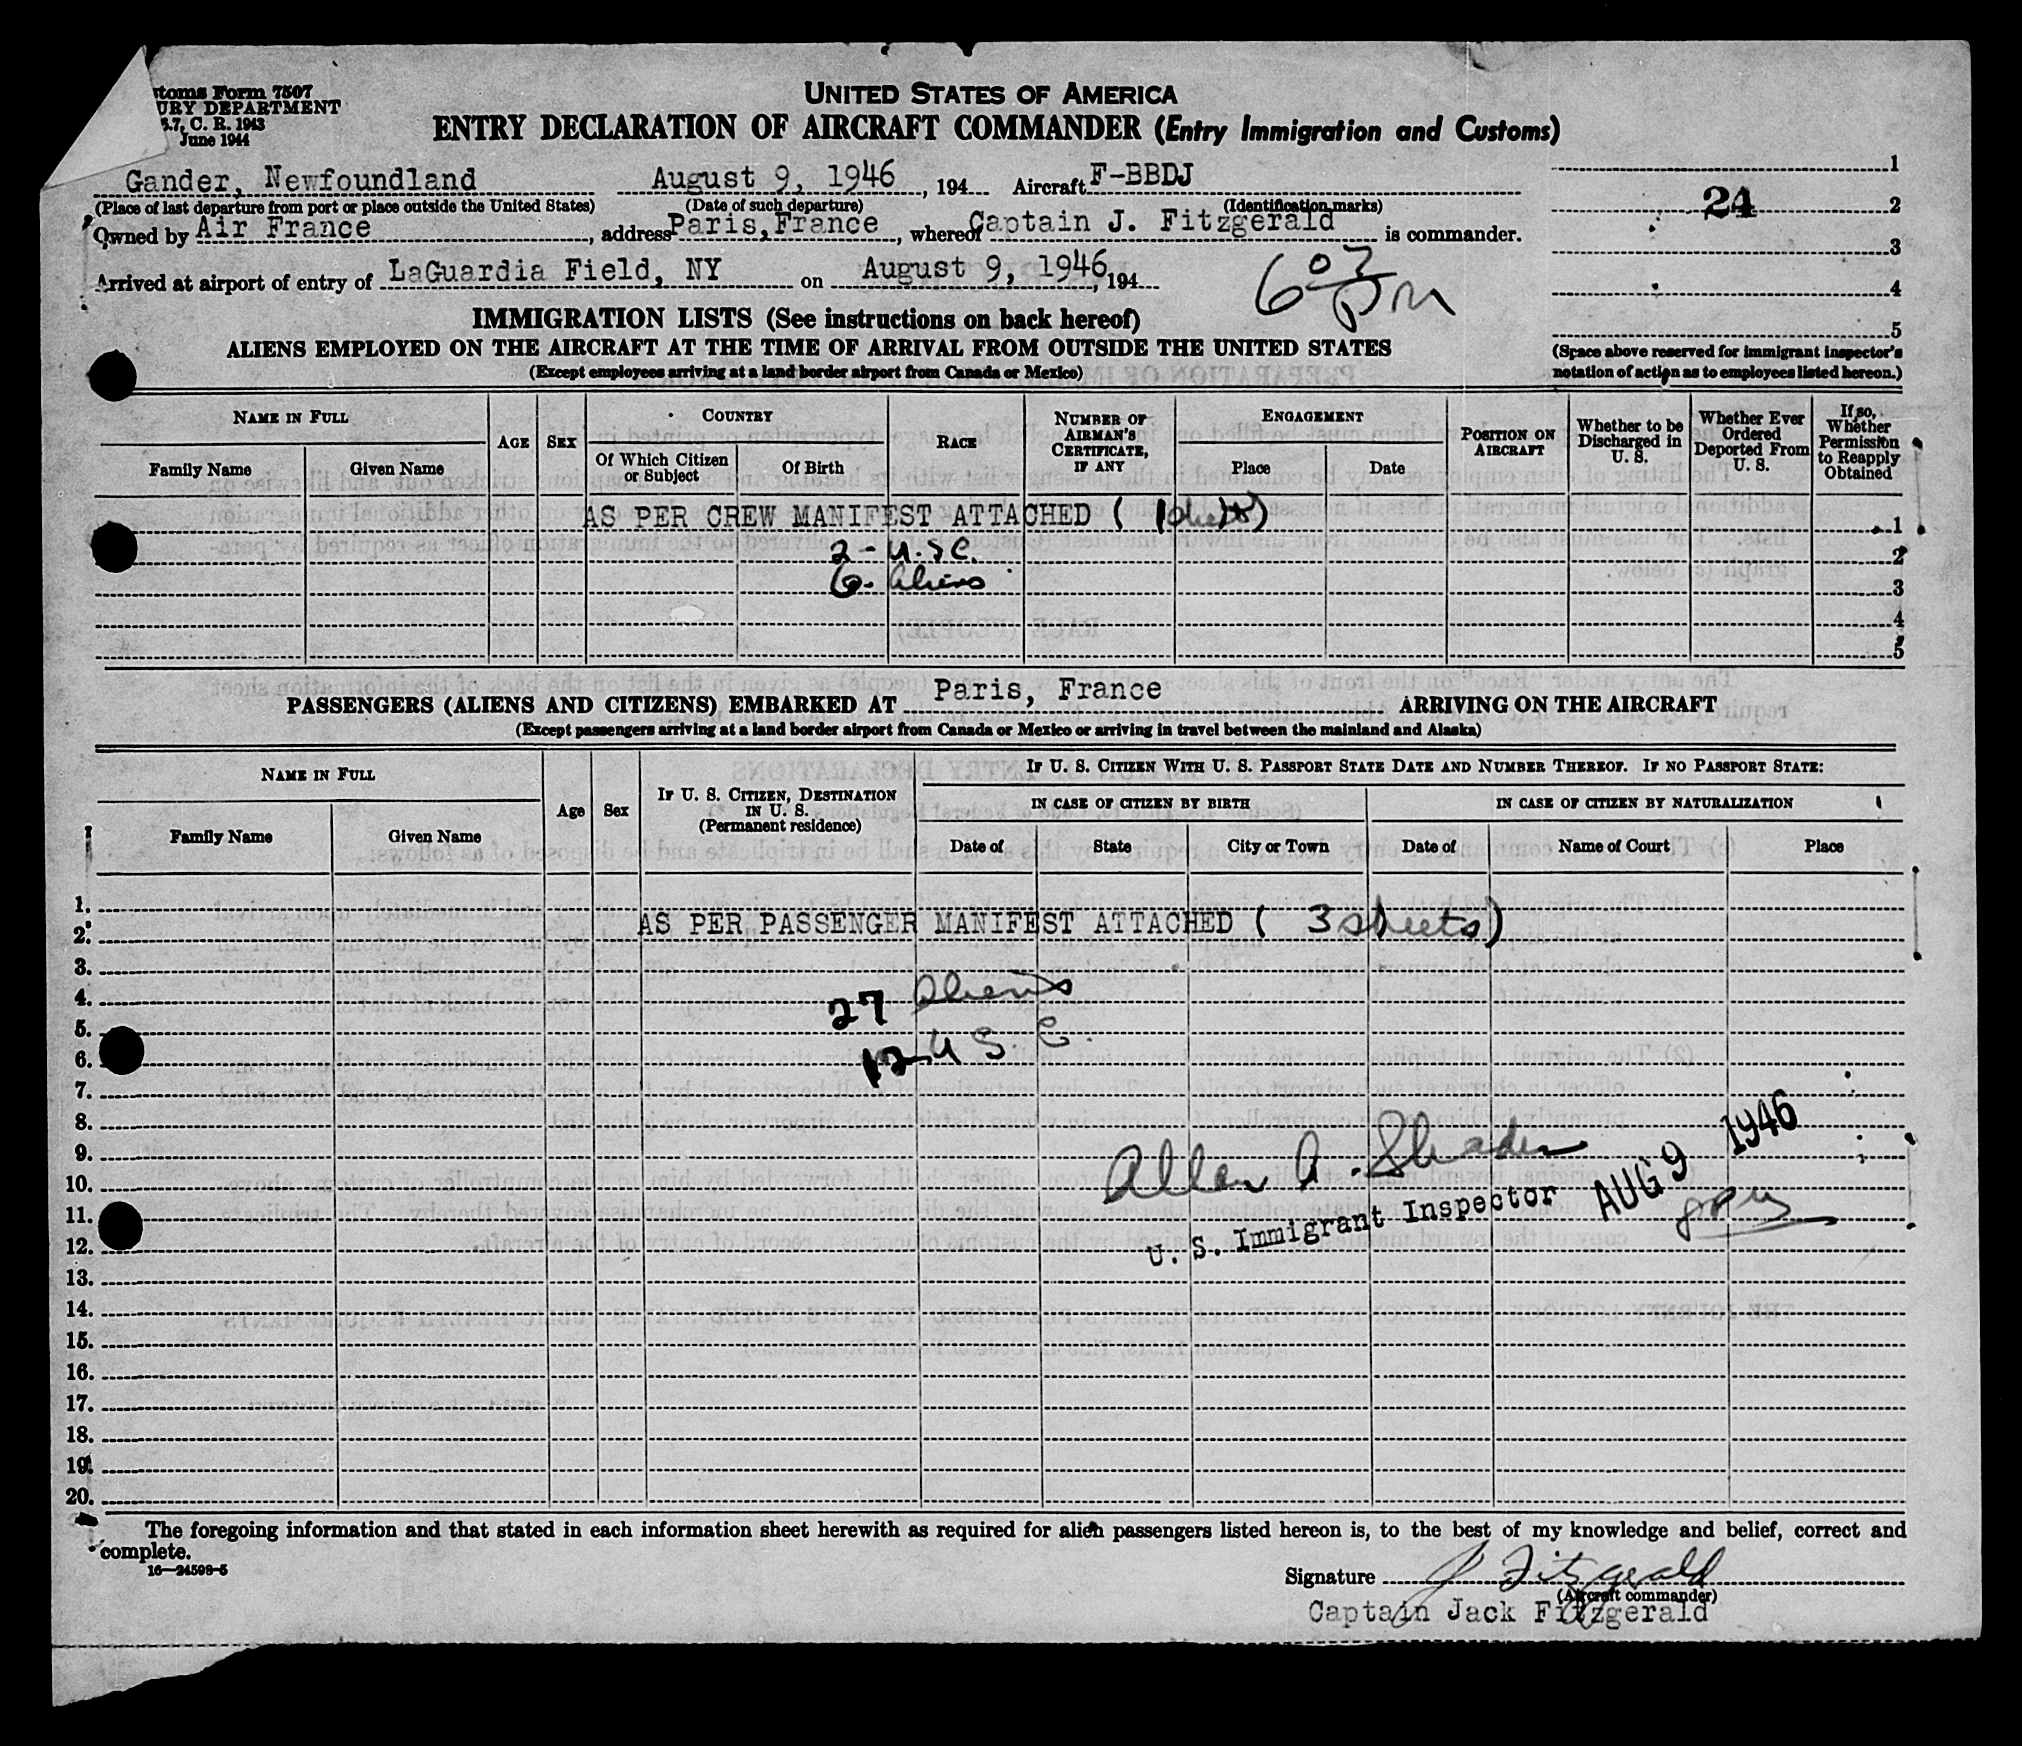 UNITED STATES OF AMERICA
ENTRY DECLARATION OF AIRCRAFT COMMANDER (Entry Immigration and Customs)
toms Form 7507
URY DEPARTMENT
C. R. 1943
June 1944
Gander, Newfoundland August 9, 1946, 194 Aircraft F-BBDJ
(Place of last departure from port or place outside the United States) (Date of such departure) (Identification marks)
Owned by Air France, address Paris, France, whereof Captain J. Fitzgerald is commander.
Arrived at airport of entry of LaGuardia Field, NY on August 9, 1946, 194
6 07 PM
1
24 2
3
4
5
(Space above reserved for immigrant inspector's notation of action as to employees listed hereon.)
IMMIGRATION LISTS (See instructions on back hereof)
ALIENS EMPLOYED ON THE AIRCRAFT AT THE TIME OF ARRIVAL FROM OUTSIDE THE UNITED STATES
(Except employees arriving at a land border airport from Canada or Mexico)
NAME IN FULL
Family Name
Given Name
AGE
SEX
COUNTRY
Of Which Citizen or Subject
Of Birth
RACE
NUMBER OF AIRMAN'S CERTIFICATE, IF ANY
ENGAGEMENT
Place
Date
POSITION ON AIRCRAFT
Whether to be Discharged in U. S.
Whether Ever Ordered Deported From U. S.
If so, Whether Permission to Reapply Obtained
AS PER CREW MANIFEST ATTACHED ( 1 ) 1
2 - U.S.C. 2
6 - Aliens 3
4
5
PASSENGERS (ALIENS AND CITIZENS) EMBARKED AT Paris, France ARRIVING ON THE AIRCRAFT
(Except passengers arriving at a land border airport from Canada or Mexico or arriving in travel between the mainland and Alaska)
NAME IN FULL
Family Name
Given Name
Age
Sex
IF U. S. CITIZEN, DESTINATION IN U. S. (Permanent residence)
IF U. S. CITIZEN WITH U. S. PASSPORT STATE DATE AND NUMBER THEREOF. IF NO PASSPORT STATE:
IN CASE OF CITIZEN BY BIRTH
IN CASE OF CITIZEN BY NATURALIZATION
Date of
State
City or Town
Date of
Name of Court
Place
1.
AS PER PASSENGER MANIFEST ATTACHED ( 3 sheets)
2.
3.
4. 27 Aliens
5.
6. 12 U.S.C.
7.
8.
9. Allen A. Shader
10. AUG 9 1946
11. U. S. Immigrant Inspector
12.
13.
14.
15.
16.
17.
18.
19.
20.
The foregoing information and that stated in each information sheet herewith as required for alien passengers listed hereon is, to the best of my knowledge and belief, correct and
complete.
16—24598-5
Signature J Fitzgerald
(Aircraft commander)
Captain Jack Fitzgerald